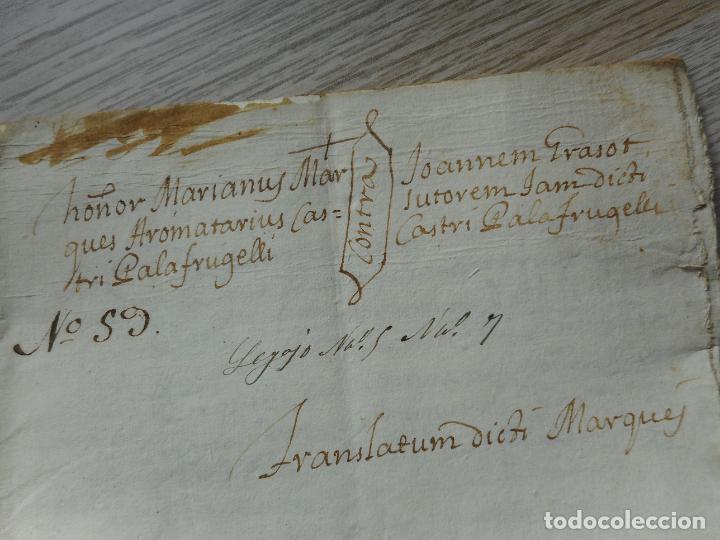 honor Marianus Mar
ques Aromatarius Cas=
tri Palafrugelli
contra
Joannem Grasot
sutorem Jam dicti
Castri Palafrugelli
Nº 59.
Legajo Nº. 5 Nº. 7
translatum dicti Marques
todocoleccion